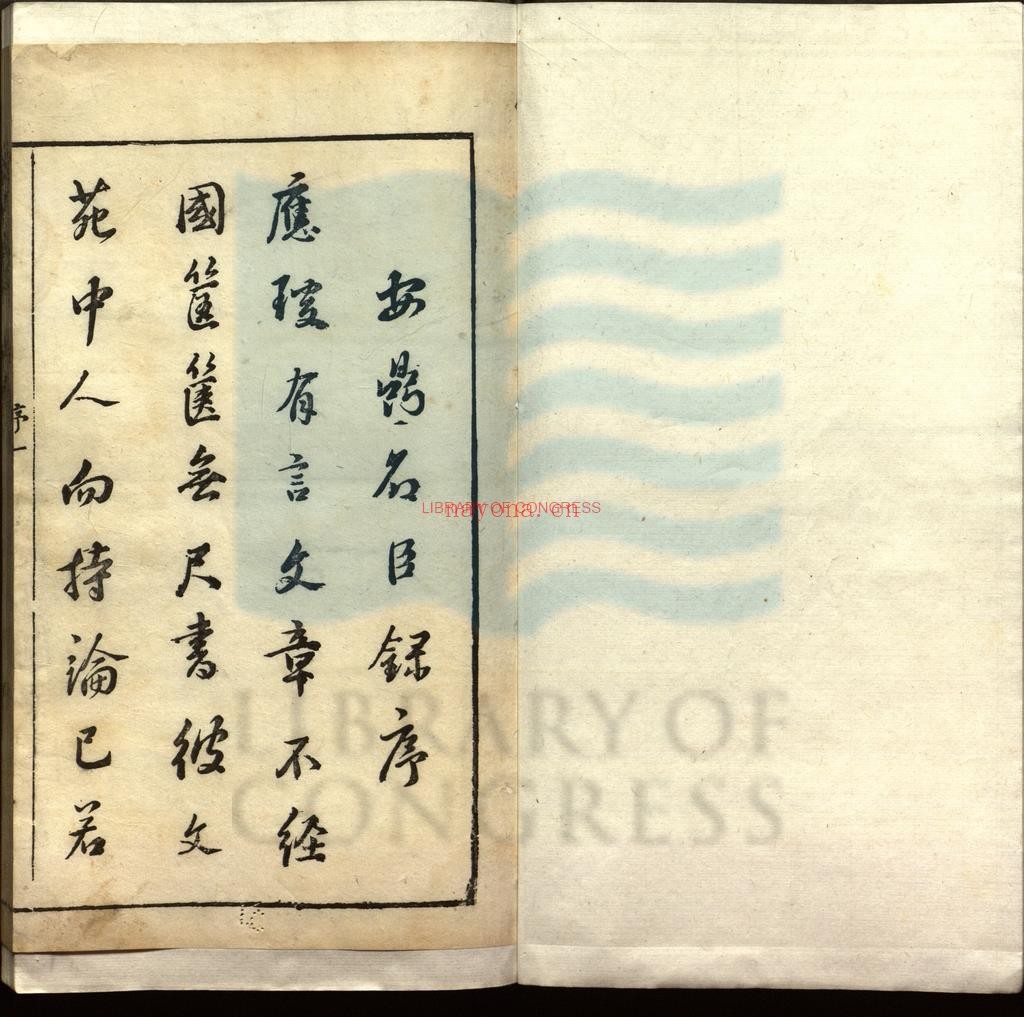 安鼎名臣錄序
應璩有言文章不經
國筐篋無尺書彼文
苑中人向持論已若
序一
LIBRARY OF CONGRESS
nayona.cn
LIBRARY OF
CONGRESS